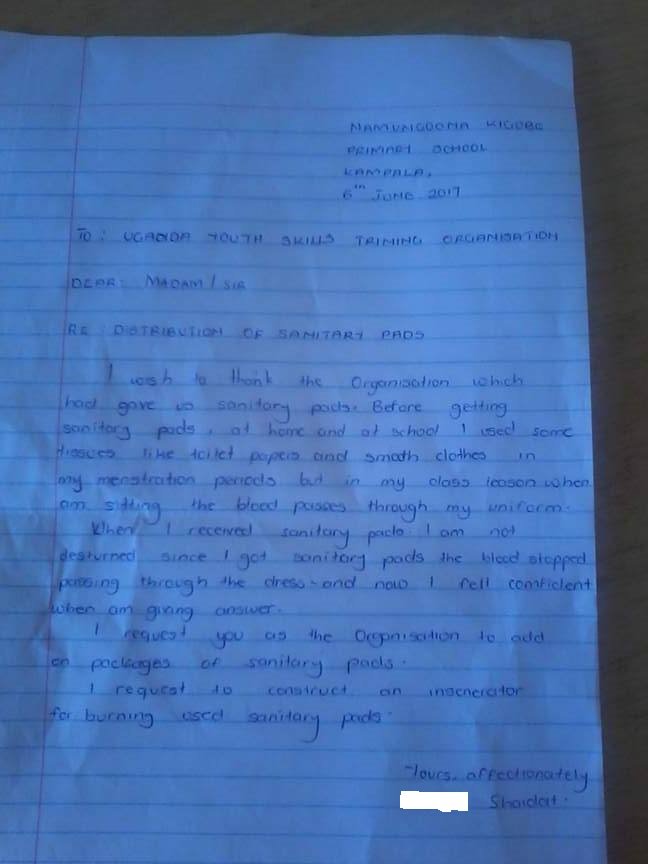 NAMUNGOONA KIGOBE
PRIMARY SCHOOL
KAMPALA,
6th JUNE 2017
TO: UGANDA YOUTH SKILLS TRINING ORGANISATION
DEAR: MADAM / SIR
RE DISTRIBUTION OF SANITARY PADS
I wish to thank the Organisation which
had gave us sanitary pads. Before getting
sanitary pads, at home and at school I used some
tissues like toilet papers and smoth clothes in
my menstration periods but in my class lesson when
am sitting the blood passes through my uniform.
When I received sanitary pads I am not
desturned since I got sanitary pads the blood stopped
passing through the dress and now I fell comficient
when am giving answer.
I request you as the Organisation to add
on packages of sanitary pads.
I request to construct an insenerator
for burning used sanitary pads.
Yours, affectionately
Shaidat.